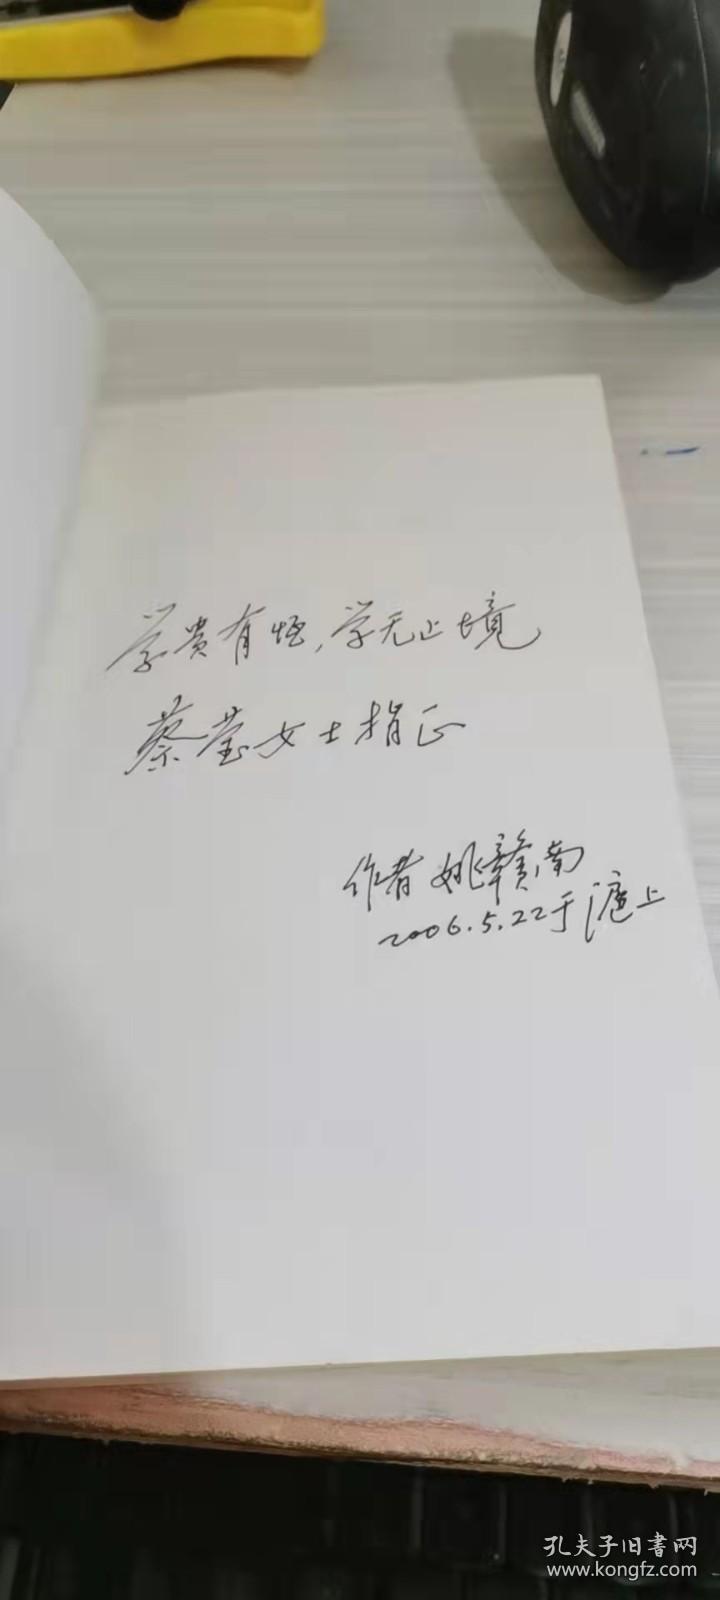 学贵有悟,学无止境
蔡莹女士指正
作者 姚赣南
2006.5.22于沪上
孔夫子旧书网
www.kongfz.com